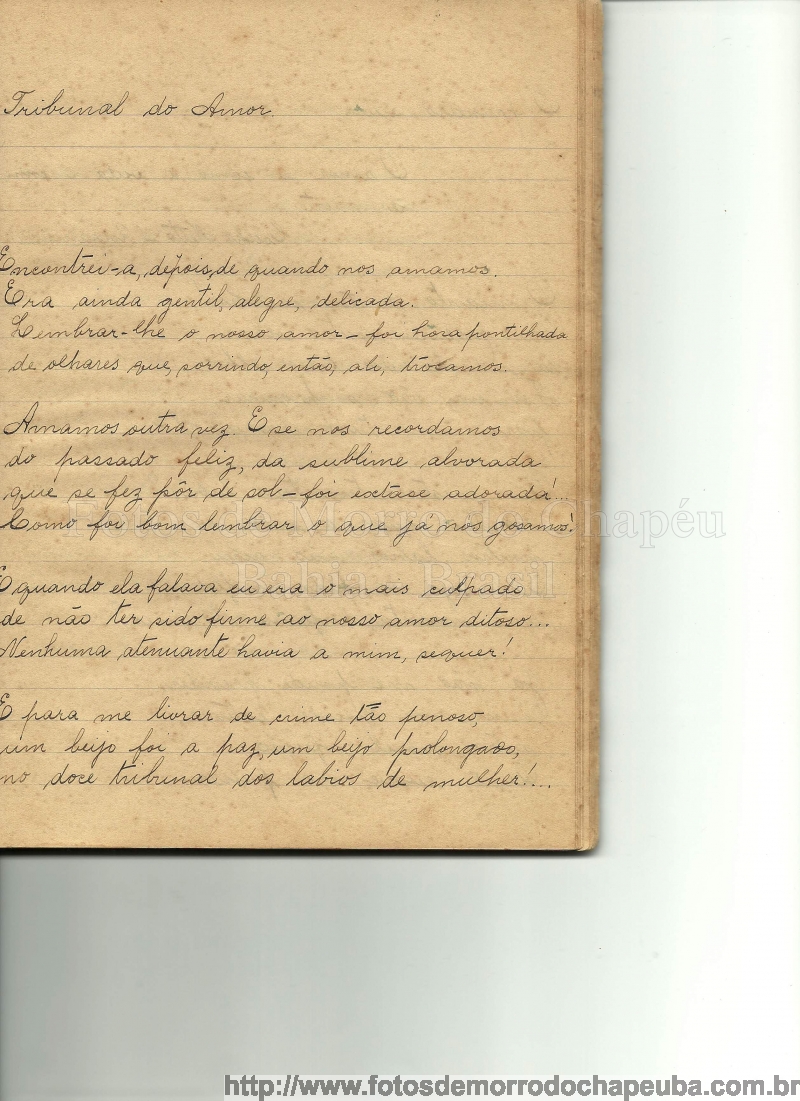 Tribunal do Amor.
Encontrei-a, depois, de quando nos amamos.
Era ainda gentil, alegre, delicada.
Lembrar-lhe o nosso amor - foi hora pontilhada
de olhares que, sorrindo, então, ali, trocamos.
Amamos outra vez. E se nos recordamos
do passado feliz, da sublime alvorada
que se fez pôr de sol - foi extase adorada!...
Como foi bom lembrar o que já nos gosamos!
E quando ela falava eu era o mais culpado
de não ter sido firme ao nosso amor ditoso...
Nenhuma atenuante havia a mim, sequer!
E para me livrar de crime tão penoso,
um beijo foi a paz, um beijo prolongado,
no doce tribunal dos labios de mulher!...
Fotos de Morro do Chapéu
Bahia - Brasil
http://www.fotosdemorrodochapeuba.com.br